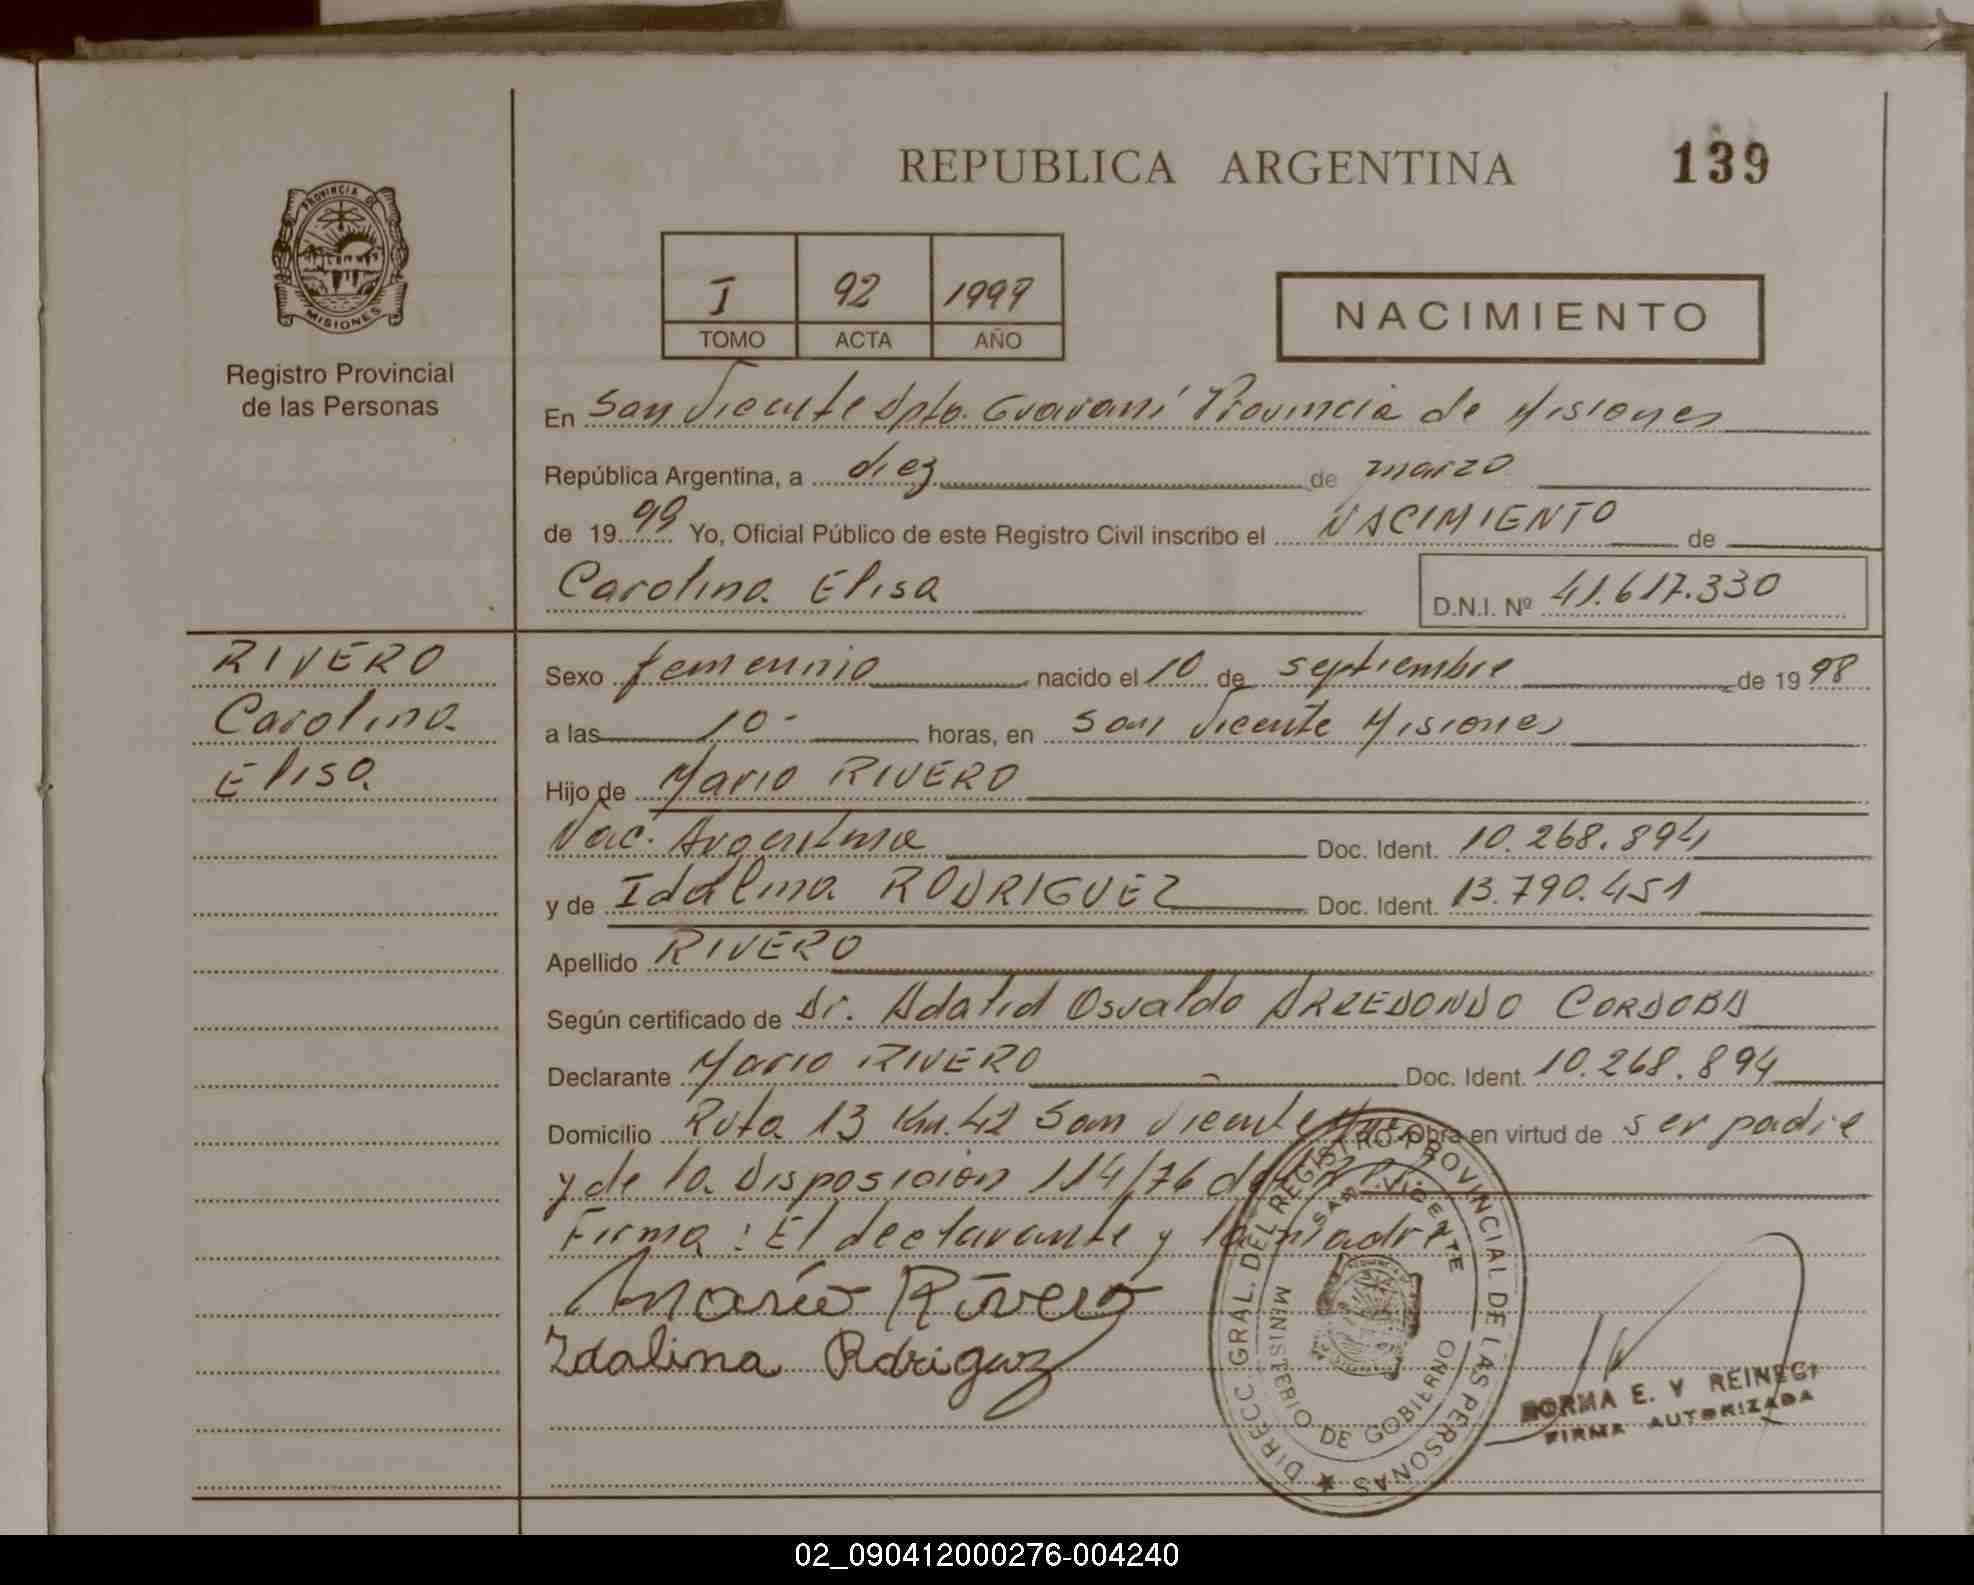 REPUBLICA ARGENTINA
139
PROVINCIA DE
MISIONES
Registro Provincial
de las Personas
I 92 1999
TOMO ACTA AÑO
NACIMIENTO
En San Vicente Dpto. Guaraní Provincia de Misiones
República Argentina, a diez de marzo
de 1999 Yo, Oficial Público de este Registro Civil inscribo el NACIMIENTO de
Carolina Elisa D.N.I. Nº 41.617.330
RIVERO
Carolina
Elisa
Sexo femenino nacido el 10 de septiembre de 1998
a las 10- horas, en San Vicente Misiones
Hijo de Mario RIVERO
Nac. Argentina Doc. Ident. 10.268.894
y de Idalina RODRIGUEZ Doc. Ident. 13.790.451
Apellido RIVERO
Según certificado de Dr. Adalid Osvaldo ARREDONDO CORDOBA
Declarante Mario RIVERO Doc. Ident. 10.268.894
Domicilio Ruta 13 Km. 42 San Vicente Obra en virtud de ser padre
y de la Disposición 114/76 del
Firma: El declarante y la madre
Mario Rivero
Idalina Rdriguz
DIRECC. GRAL. DEL REGISTRO PROVINCIAL DE LAS PERSONAS
SAN VICENTE
MINISTERIO DE GOBIERNO
NORMA E. V REINEGI
FIRMA AUTORIZADA
02_090412000276-004240